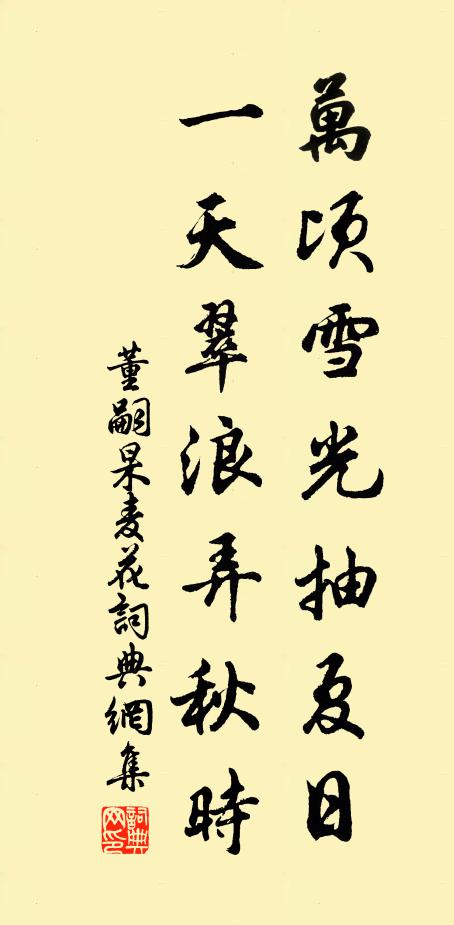 萬頃雪光抽夏日
一天翠浪弄秋時
董嗣杲麦花詞典網集
詞典網印